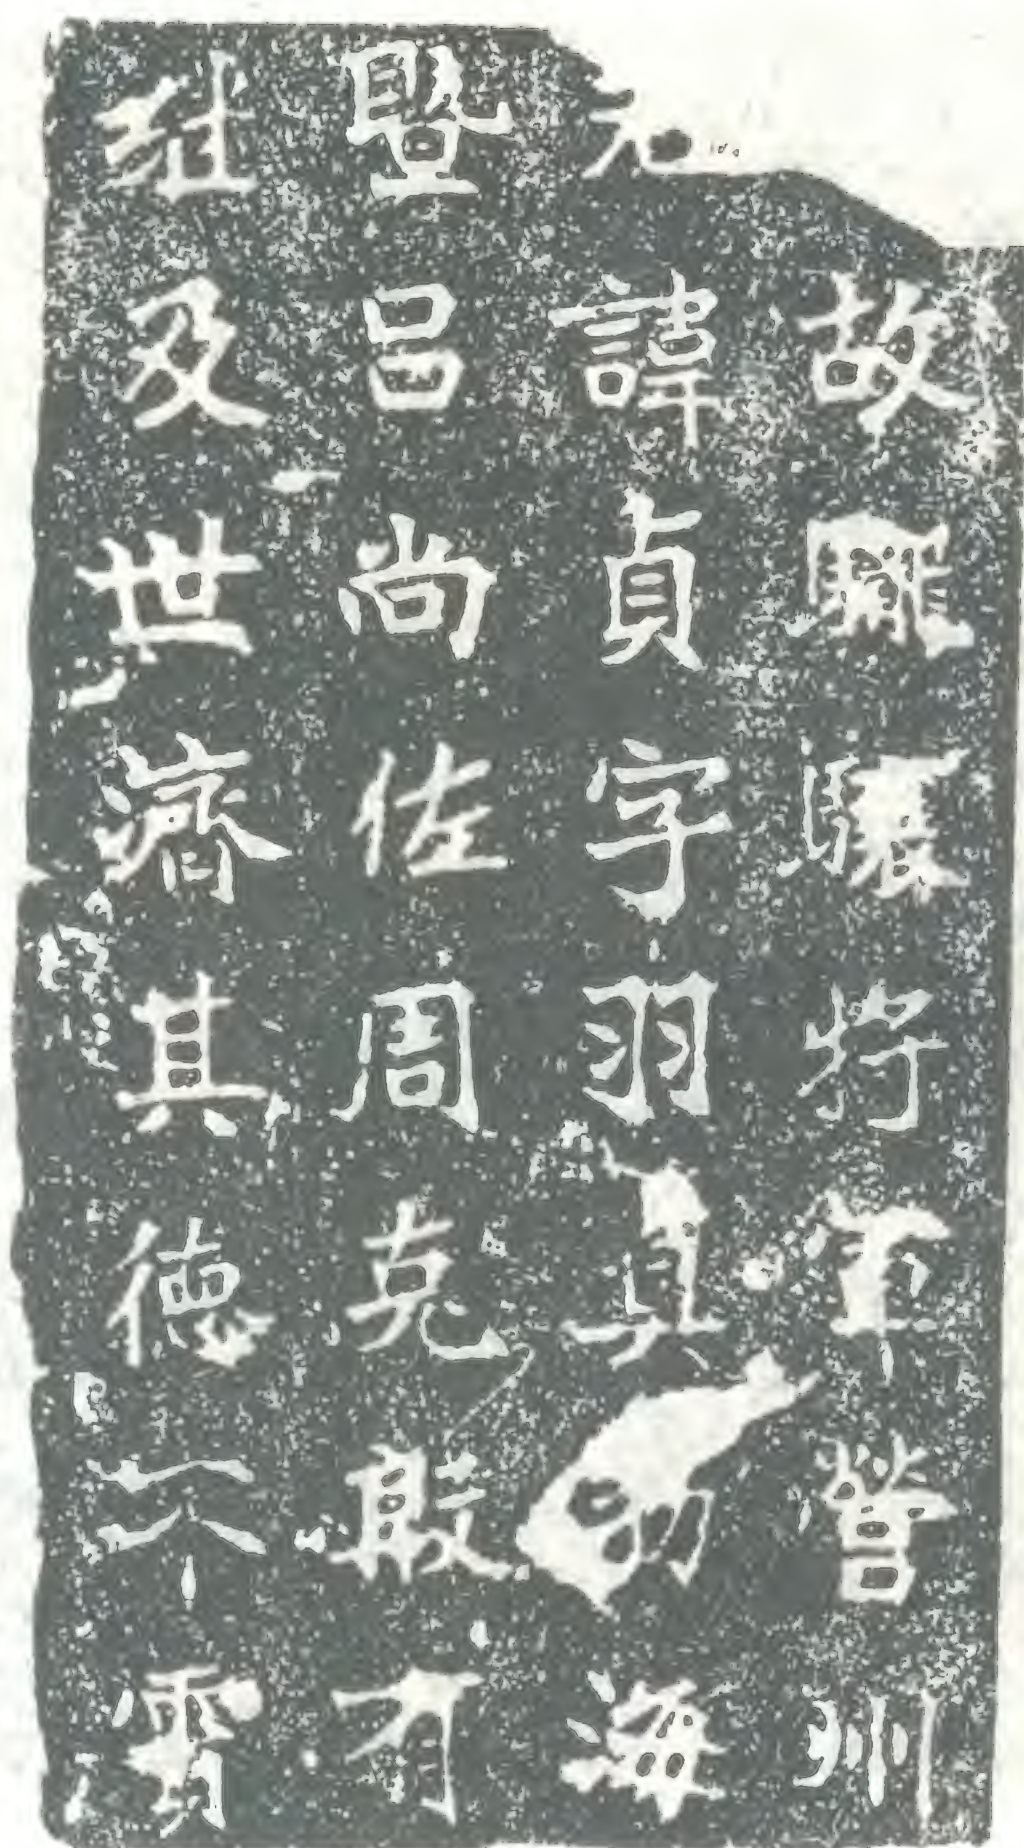 故龍驤将軍營州
諱貞字羽真勃海
暨呂尚佐周克殷有
及世濟其德不霣